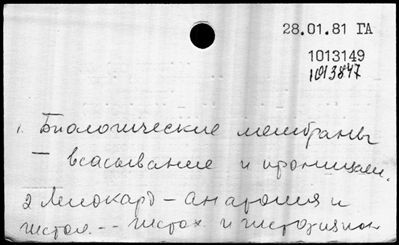 28.01.81 ГА
1013149
1013847
1. Биологические мембраны
— всасывание и проницаем.
2 Миокард – анатомия и
гистол. -- гистох. и гистофизиол